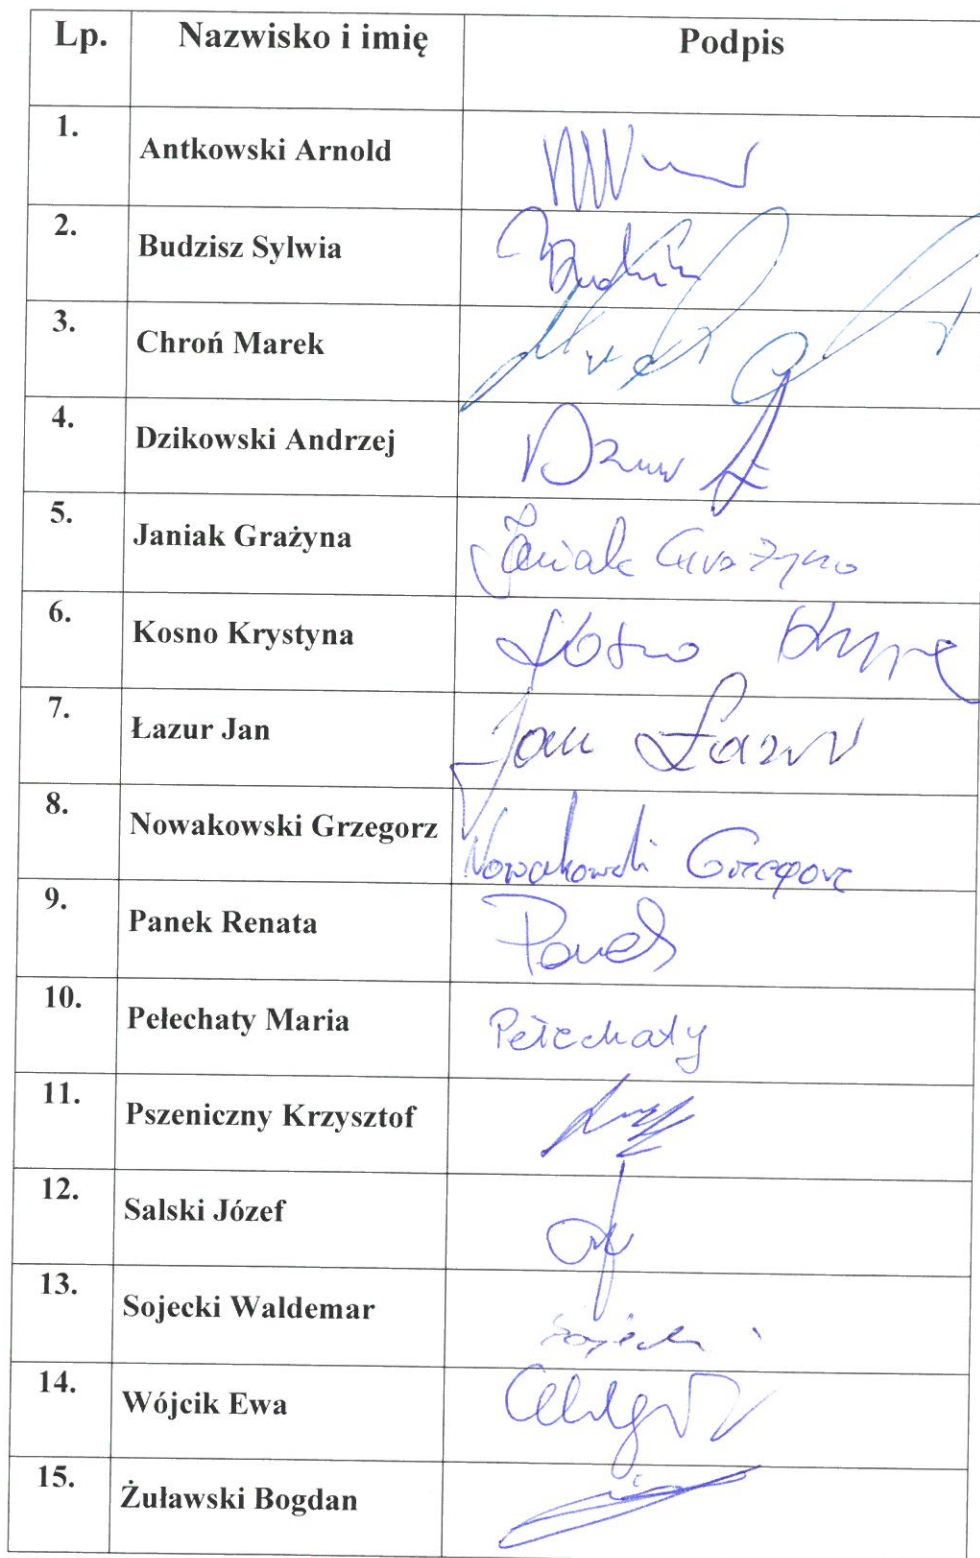 Lp. Nazwisko i imię Podpis
1. Antkowski Arnold
2. Budzisz Sylwia
3. Chroń Marek
4. Dzikowski Andrzej
5. Janiak Grażyna Janiak Grażyna
6. Kosno Krystyna Kosno
7. Łazur Jan Jan Łazur
8. Nowakowski Grzegorz Nowakowski Grzegorz
9. Panek Renata Panek
10. Pełechaty Maria Pełechaty
11. Pszeniczny Krzysztof
12. Salski Józef
13. Sojecki Waldemar
14. Wójcik Ewa
15. Żuławski Bogdan